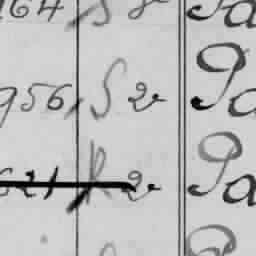 164, S 8 Pa
956, S 2 Pa
621, R 2 Pa